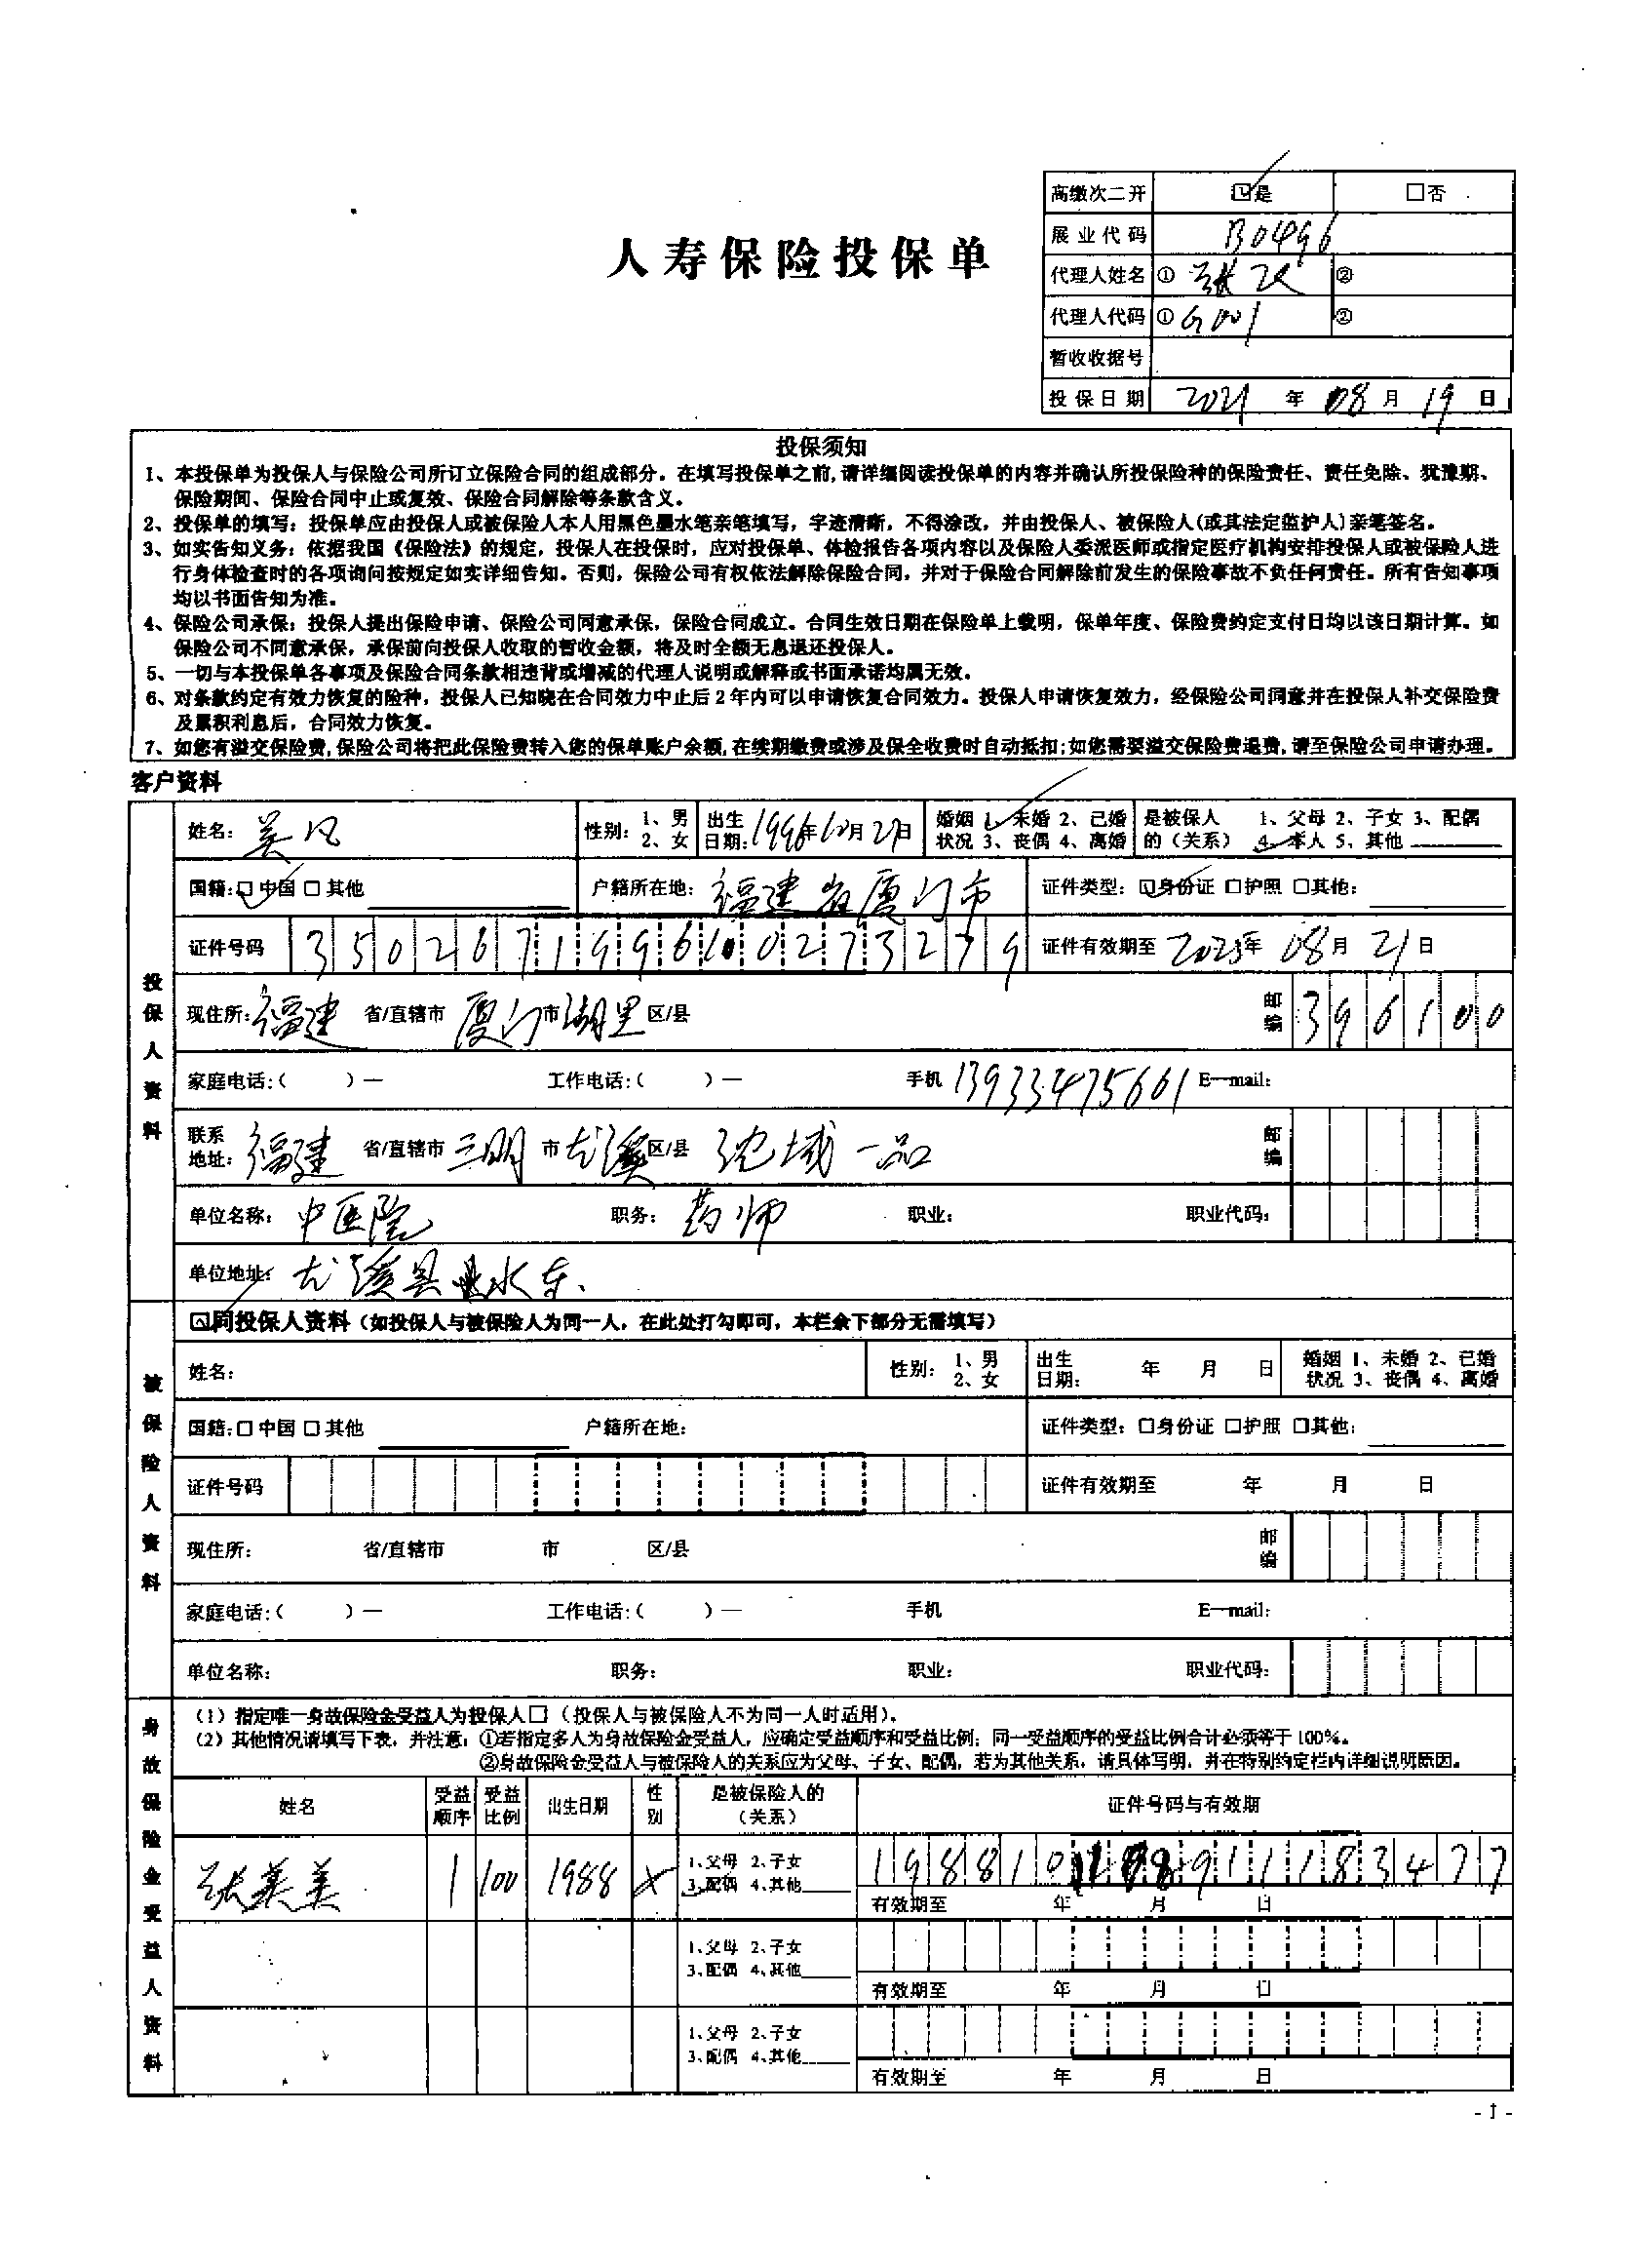 高缴次二开 ☑是 □否
展业代码 B0496
人寿保险投保单
代理人姓名 ① 张 ②
代理人代码 ① G001 ②
暂收收据号
投保日期 2021 年 08 月 19 日
投保须知
1、本投保单为投保人与保险公司所订立保险合同的组成部分。在填写投保单之前,请详细阅读投保单的内容并确认所投保险种的保险责任、责任免除、犹豫期、
保险期间、保险合同中止或复效、保险合同解除等条款含义。
2、投保单的填写：投保单应由投保人或被保险人本人用黑色墨水笔亲笔填写，字迹清晰，不得涂改，并由投保人、被保险人(或其法定监护人)亲笔签名。
3、如实告知义务：依据我国《保险法》的规定，投保人在投保时，应对投保单、体检报告各项内容以及保险人委派医师或指定医疗机构安排投保人或被保险人进
行身体检查时的各项询问按规定如实详细告知。否则，保险公司有权依法解除保险合同，并对于保险合同解除前发生的保险事故不负任何责任。所有告知事项
均以书面告知为准。
4、保险公司承保：投保人提出保险申请、保险公司同意承保，保险合同成立。合同生效日期在保险单上载明，保单年度、保险费约定支付日均以该日期计算。如
保险公司不同意承保，承保前向投保人收取的暂收金额，将及时全额无息退还投保人。
5、一切与本投保单各事项及保险合同条款相违背或增减的代理人说明或解释或书面承诺均属无效。
6、对条款约定有效力恢复的险种，投保人已知晓在合同效力中止后2年内可以申请恢复合同效力。投保人申请恢复效力，经保险公司同意并在投保人补交保险费
及累积利息后，合同效力恢复。
7、如您有溢交保险费,保险公司将把此保险费转入您的保单账户余额,在续期缴费或涉及保全收费时自动抵扣;如您需要溢交保险费退费,请至保险公司申请办理。
客户资料
投保人资料
姓名： 性别：1、男 2、女 出生日期：1996年10月27日 婚姻状况 1、未婚 2、已婚 3、丧偶 4、离婚 是被保人的（关系） 1、父母 2、子女 3、配偶 4、本人 5、其他
国籍：☑中国 □其他 户籍所在地：福建省厦门市 证件类型：☑身份证 □护照 □其他：
证件号码 350267199610273279 证件有效期至 2025年 08月 21日
现住所：福建 省/直辖市 厦门 市 湖里 区/县 邮编 396100
家庭电话：（ ）— 工作电话：（ ）— 手机 13933475661 E—mail：
联系地址：福建 省/直辖市 三明 市 尤溪 区/县 一品 邮编
单位名称：中医院 职务：药师 职业： 职业代码：
单位地址：尤溪县水东
被保险人资料
☑同投保人资料（如投保人与被保险人为同一人，在此处打勾即可，本栏余下部分无需填写）
姓名： 性别：1、男 2、女 出生日期： 年 月 日 婚姻状况 1、未婚 2、已婚 3、丧偶 4、离婚
国籍：□中国 □其他 户籍所在地： 证件类型：□身份证 □护照 □其他：
证件号码 证件有效期至 年 月 日
现住所： 省/直辖市 市 区/县 邮编
家庭电话：（ ）— 工作电话：（ ）— 手机 E—mail：
单位名称： 职务： 职业： 职业代码：
身故保险金受益人资料
（1）指定唯一身故保险金受益人为投保人□（投保人与被保险人不为同一人时适用）。
（2）其他情况请填写下表，并注意：①若指定多人为身故保险金受益人，应确定受益顺序和受益比例；同一受益顺序的受益比例合计必须等于100%。
②身故保险金受益人与被保险人的关系应为父母、子女、配偶，若为其他关系，请具体写明，并在特别约定栏内详细说明原因。
姓名 受益顺序 受益比例 出生日期 性别 是被保险人的（关系） 证件号码与有效期
张美美 1 100 1988 1、父母 2、子女 3、配偶 4、其他
有效期至 年 月 日
1、父母 2、子女 3、配偶 4、其他
有效期至 年 月 日
1、父母 2、子女 3、配偶 4、其他
有效期至 年 月 日
- 1 -